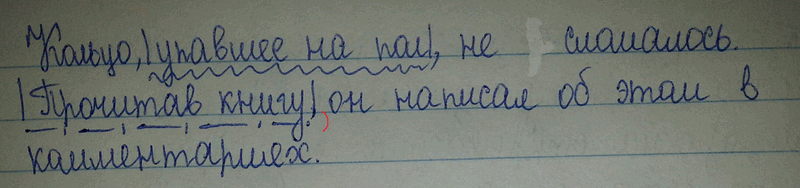 Кольцо, |упавшее на пол|, не сломалось.
|Прочитав книгу|, он написал об этом в
комментариях.